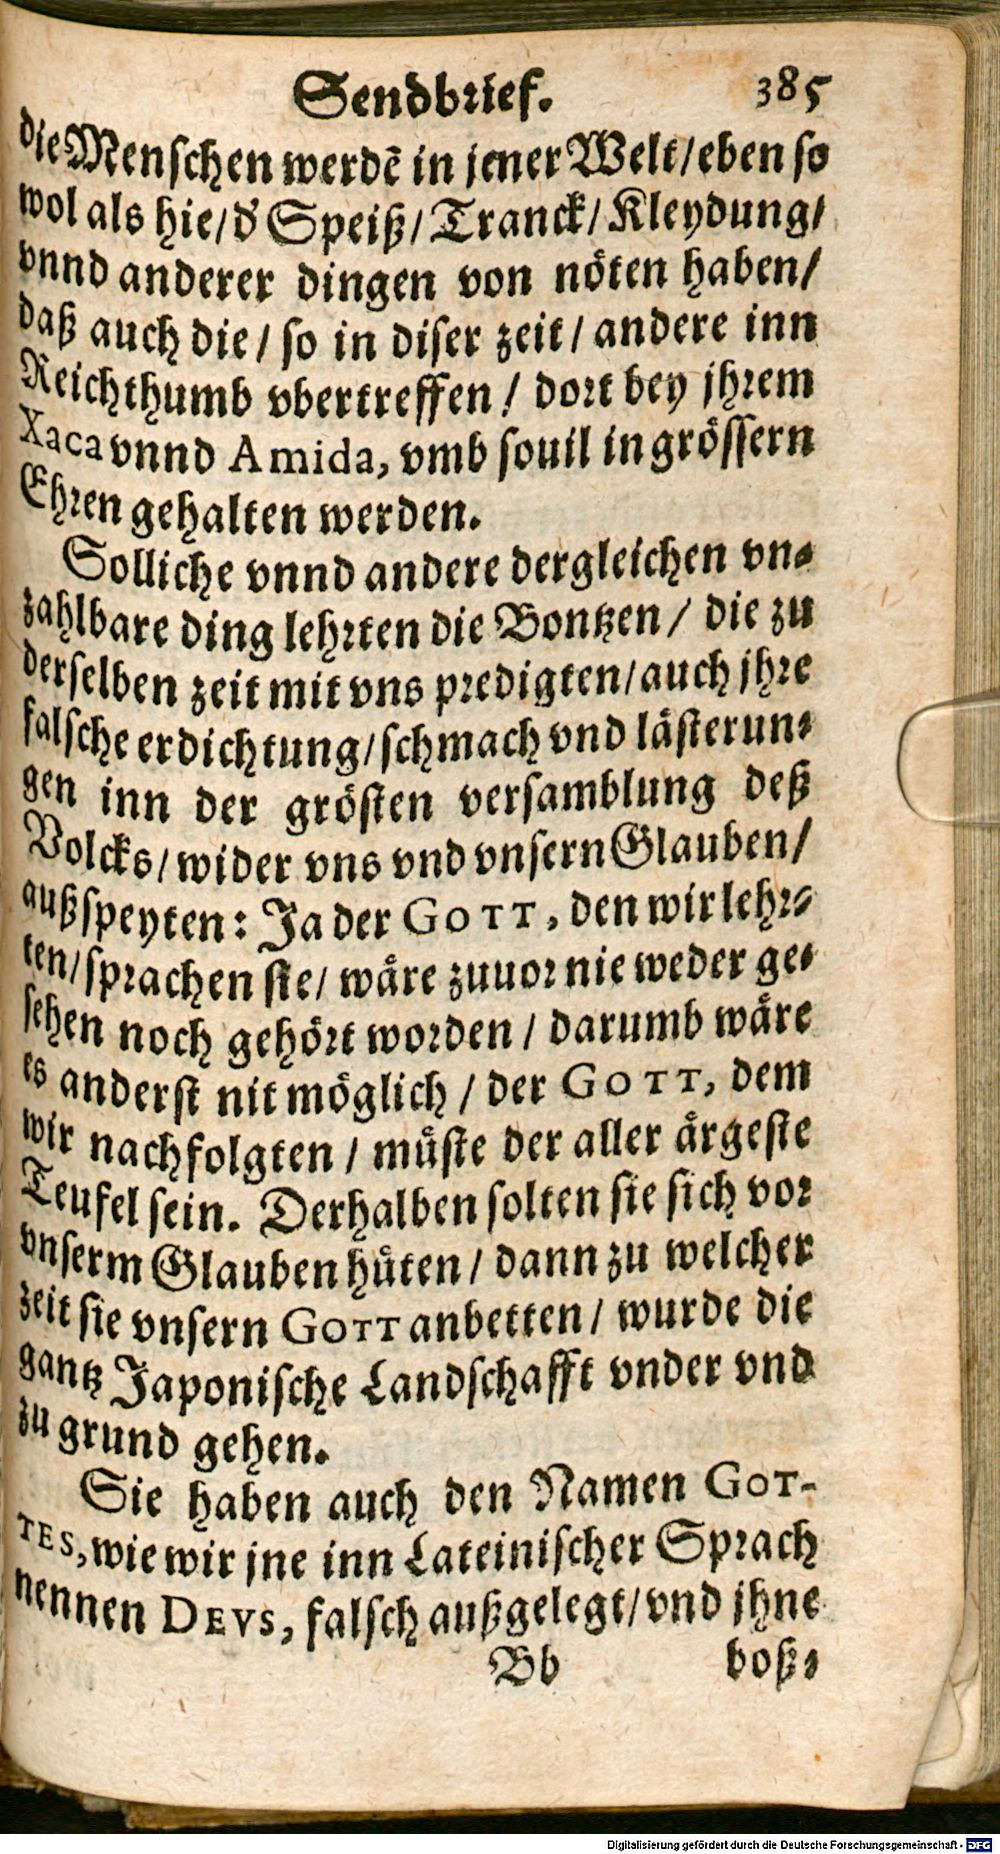 Sendbrief. 385
die Menschen werdē in jener Welt/eben so
wol als hie/d' Speiß/Tranck/Kleydung/
vnnd anderer dingen von nöten haben/
daß auch die/ so in diser zeit/ andere inn
Reichthumb vbertreffen/ dort bey jhrem
Xaca vnnd Amida, vmb souil in grössern
Ehren gehalten werden.
Solliche vnnd andere dergleichen vn-
zahlbare ding lehrten die Bontzen/ die zu
derselben zeit mit vns predigten/auch jhre
falsche erdichtung/schmach vnd lästerun-
gen inn der grösten versamblung deß
Volcks/wider vns vnd vnsern Glauben/
außspeyten: Ja der GOTT, den wir lehr-
ten/sprachen sie/ wäre zuuor nie weder ge-
sehen noch gehört worden/ darumb wäre
es anderst nit möglich/ der GOTT, dem
wir nachfolgten/ müste der aller ärgeste
Teufel sein. Derhalben solten sie sich vor
vnserm Glauben hüten/ dann zu welcher
zeit sie vnsern GOTT anbetten/ wurde die
gantz Japonische Landschafft vnder vnd
zu grund gehen.
Sie haben auch den Namen GOT-
TES, wie wir jne inn Lateinischer Sprach
nennen DEVS, falsch außgelegt/vnd jhne
Bb boß-
Digitalisierung gefördert durch die Deutsche Forschungsgemeinschaft - DFG